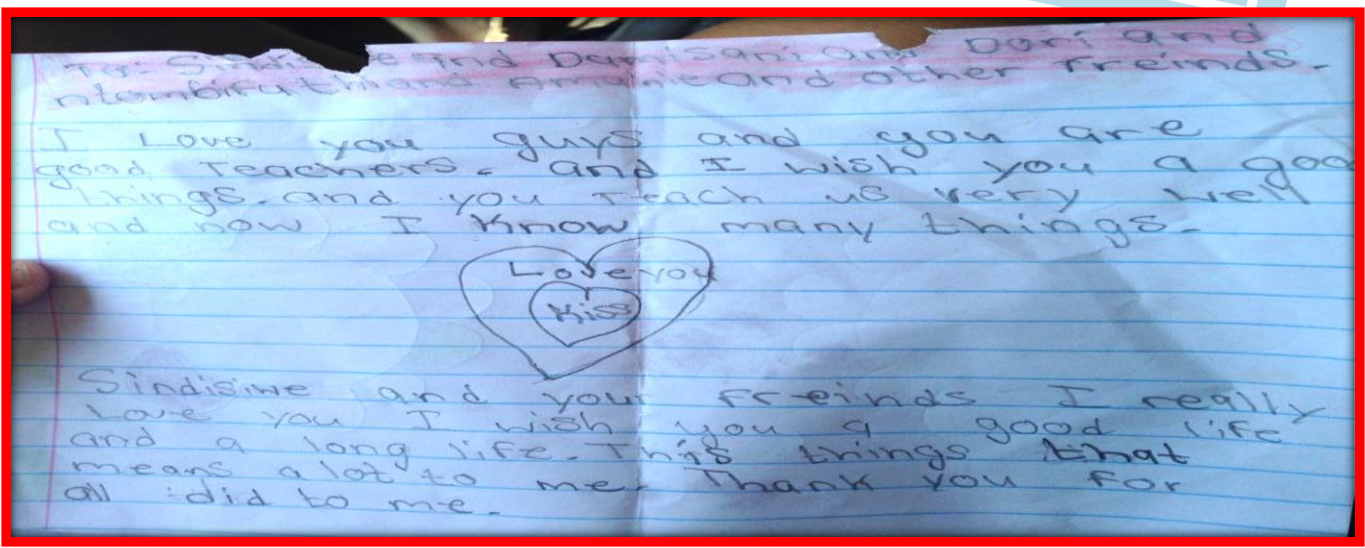 To: and Damisani and Dori and
and and other Freinds.
I Love you guys and you are
good Teachers. and I wish you a goo
things. and you Teach us very well
and now I Know many things.
Love you
Kiss
Sindisiwe and your Freinds I really
Love you I wish you a good life
and a long life. This things that
means a lot to me. Thank you For
all did to me.